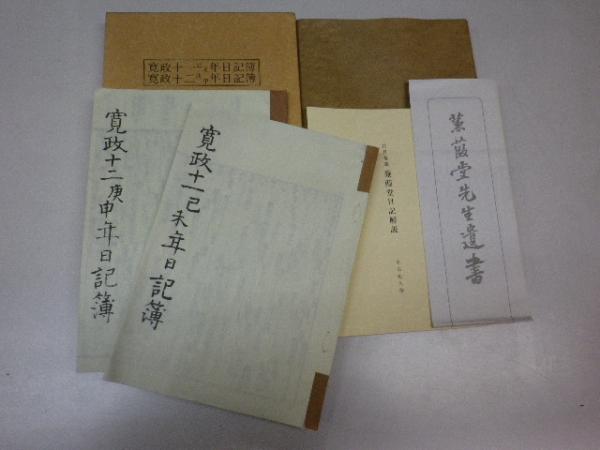 寛政十一己未年日記簿
寛政十二庚申年日記簿
寛政十二庚申年日記簿
寛政十一己未年日記簿
蒹葭堂日記解説
蒹葭堂先生遺書